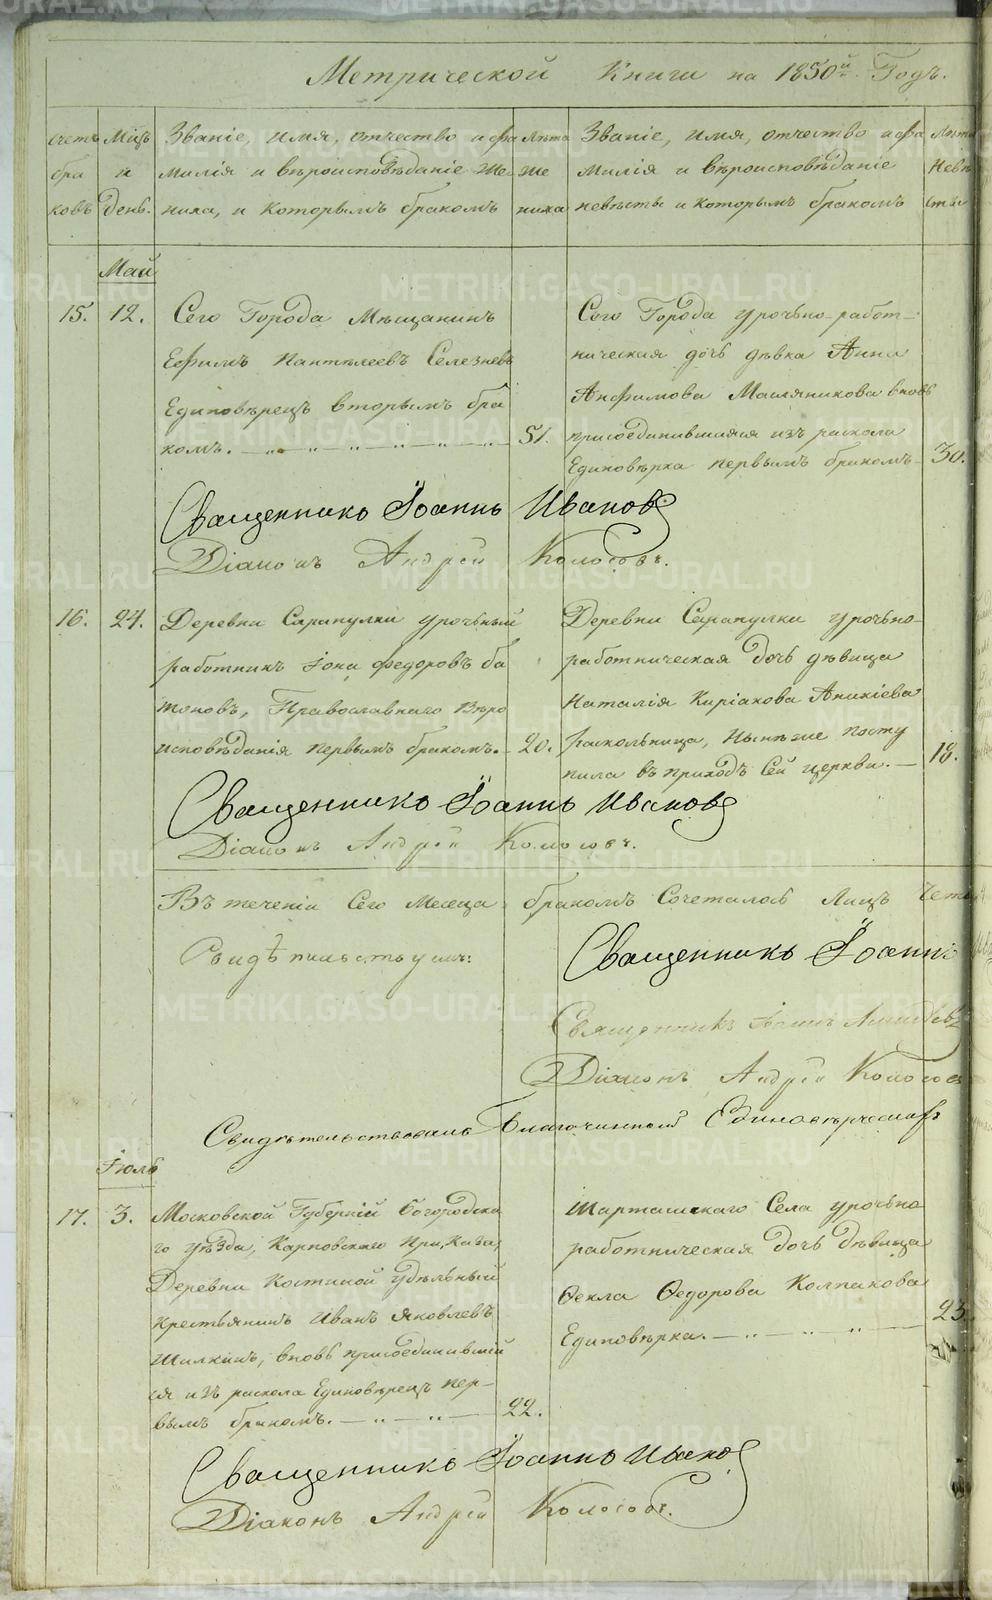 Метрической Книги на 1850й Годъ.
счетъ бра ковъ
Мцъ и день.
Званіе, имя, отчество и фа милія и вѣроисповѣданіе же ниха, и которымъ бракомъ
Лѣта же ниха
Званіе, имя, отчество и фа милія и вѣроисповѣданіе невѣсты и которымъ бракомъ
Лѣта невѣ сты
Май
15. 12.
Сего Города Мѣщанинъ
Ефимъ Пантелеевъ Селезневъ
Единовѣрецъ вторымъ бра
комъ.
51.
Сего Города урочьно-работ-
ническая дочь дѣвка Анна
Анфимова Масляникова вновь
присоединившаяся изъ раскола
Единовѣрка первымъ бракомъ
30.
Священникъ Іоаннъ Ивановъ
Діаконъ Андрей Колосовъ.
16. 24.
Деревни Сарапулки урочьный
работникъ Іона Федоровъ ба
тоновъ, Православнаго Вѣро
исповѣданія первымъ бракомъ.
20.
Деревни Сарапулки урочьно-
работническая дочь дѣвица
Наталія Киріакова Аникіева
раскольница, Нынѣ же посту
пила въ приходъ Сей церкви.
18.
Священникъ Іоаннъ Ивановъ
Діаконъ Андрей Колосовъ.
Въ теченіи Сего Месеца бракомъ Сочеталось Лицъ Четы
Свидѣтельствуемъ:
Священникъ Іоаннъ
Священникъ Іоаннъ
Діаконъ Андрей Колосов
Свидѣтельствовалъ Благочинный Единовѣрческихъ
Іюль
17. 3.
Московской Губерній богородска
го уѣзда, Карповскаго Приказа,
Деревни Костиной удѣльный
крестьянинъ Иванъ Яковлевъ
Шилкинъ, вновь присоединившій
ся изъ раскола Единовѣрецъ пер-
вымъ бракомъ.
22.
Шарташскаго Села урочьно
работническая дочь дѣвица
Ѳекла Ѳедорова Колпакова
Единовѣрка.
23.
Священникъ Іоаннъ Ивановъ
Діаконъ Андрей Колосовъ.
METRIKI.GASO-URAL.RU